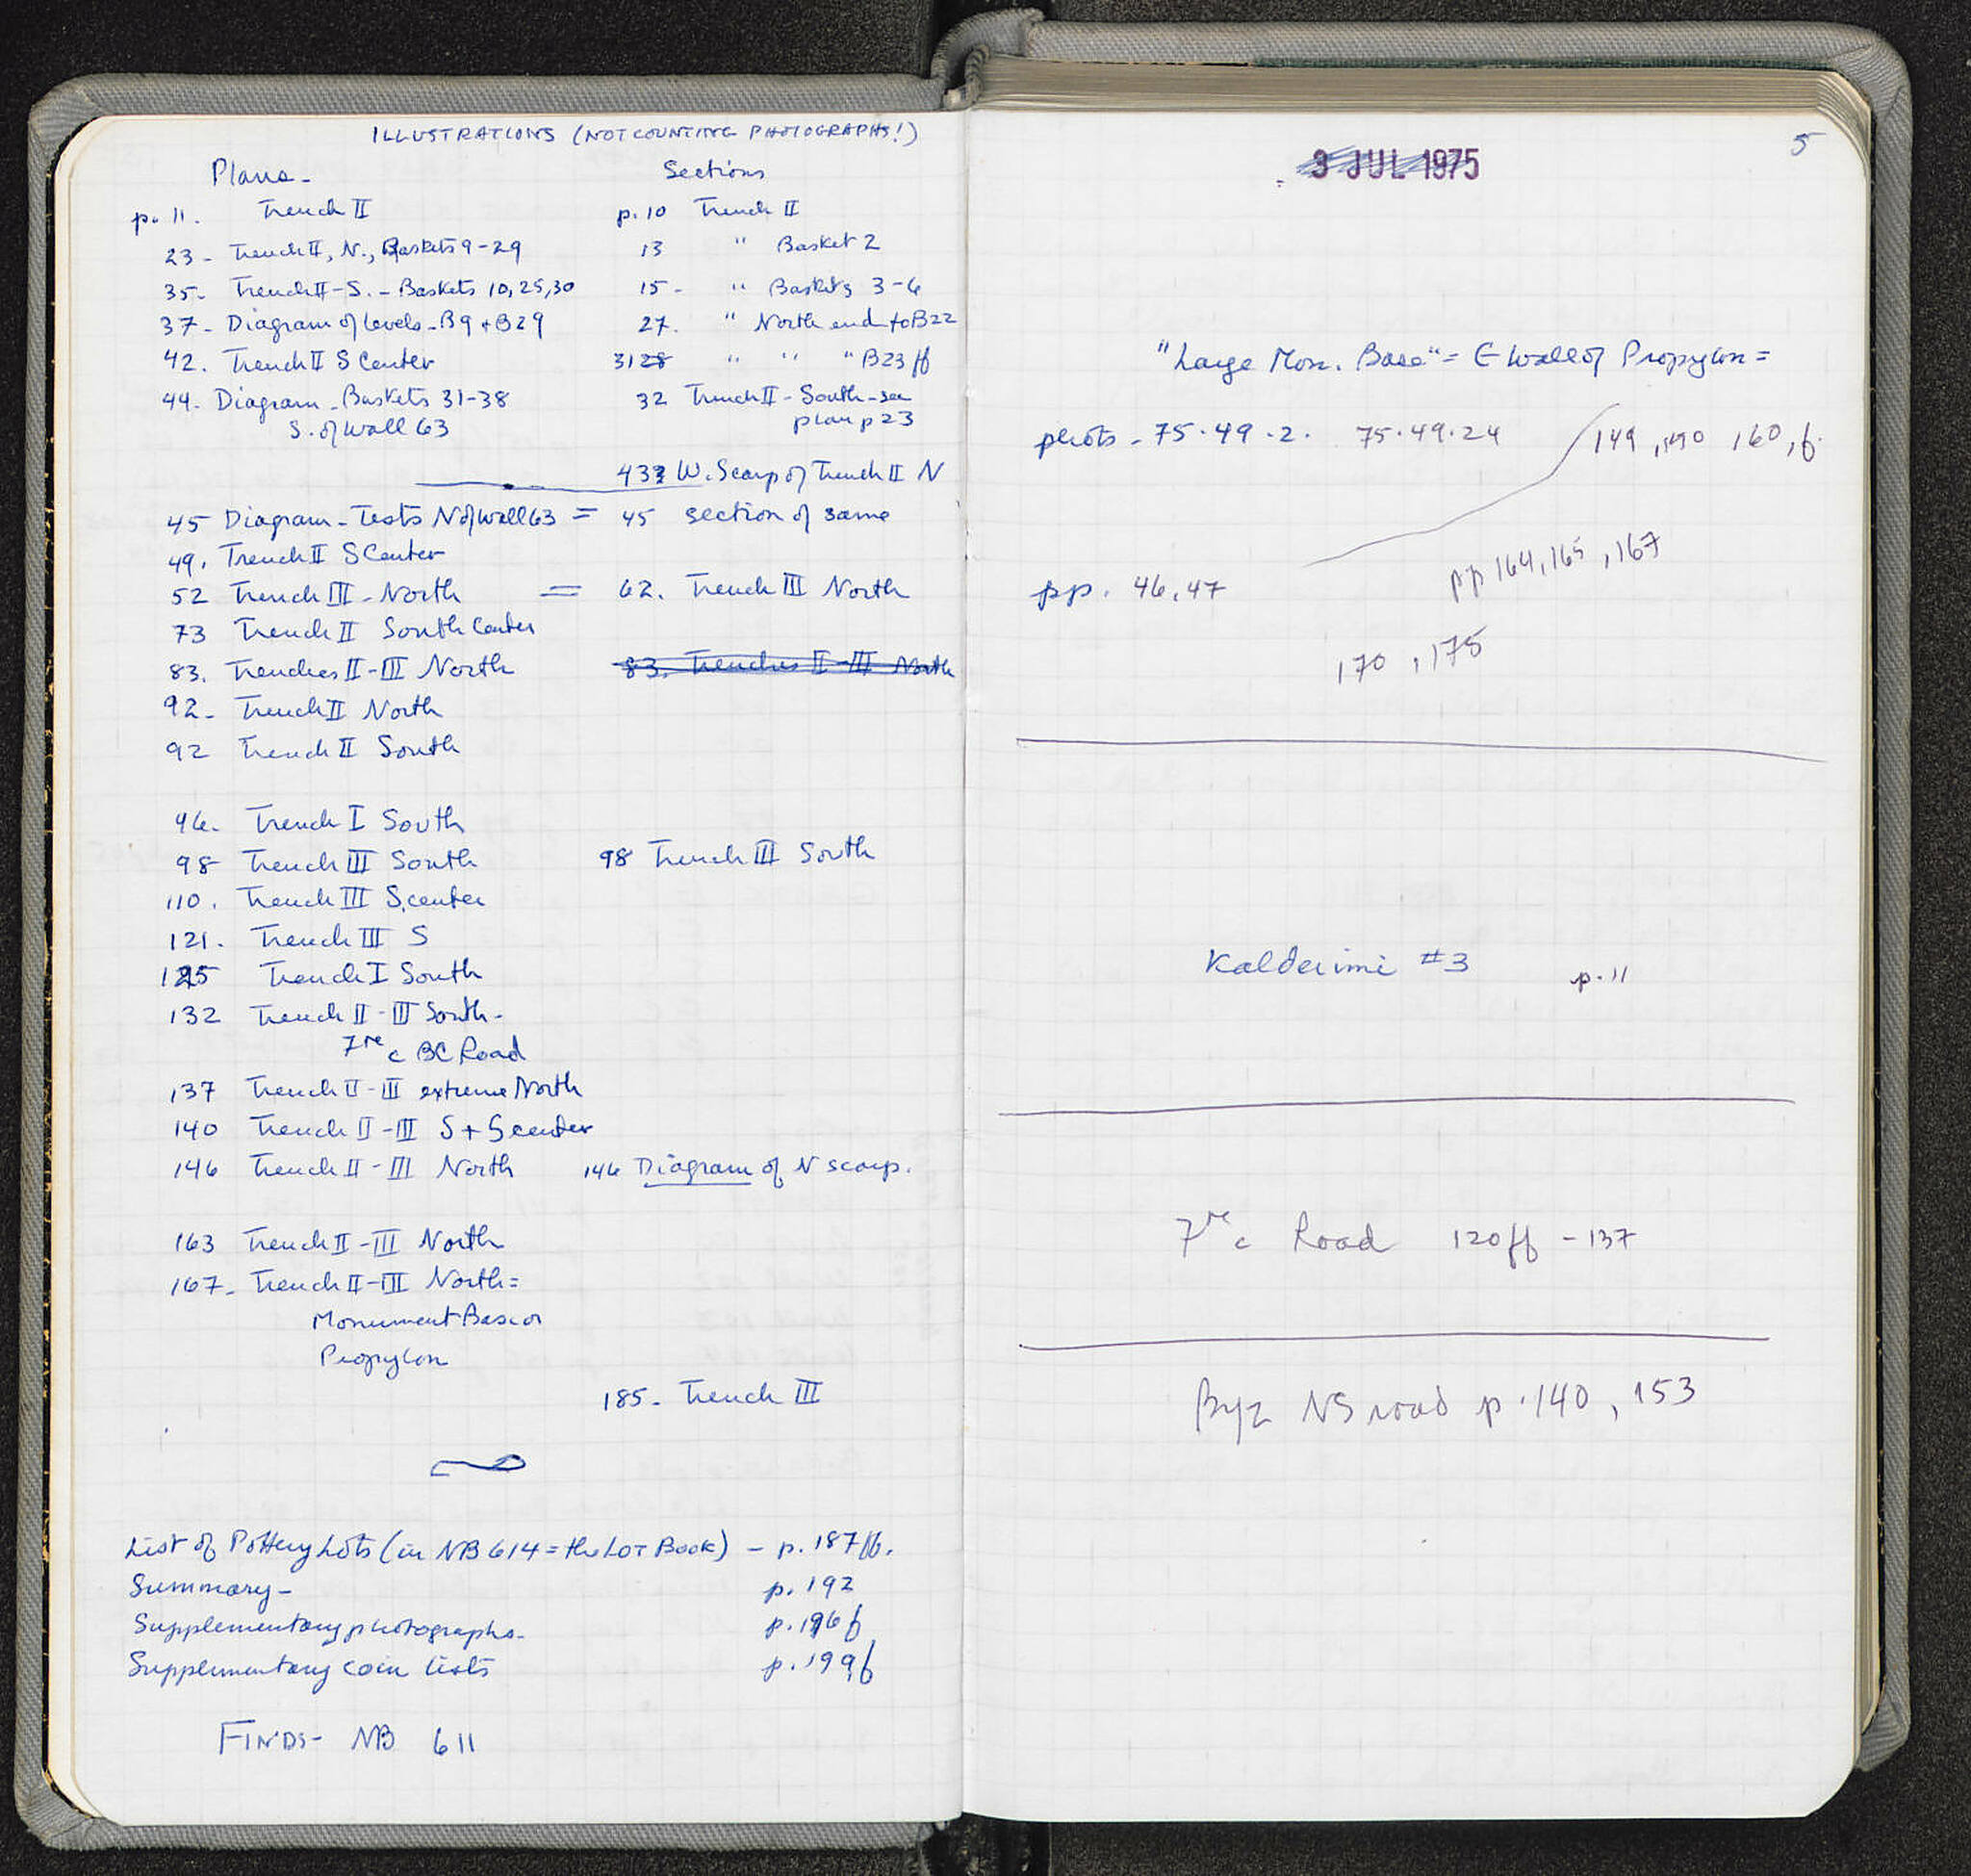 ILLUSTRATIONS (NOT COUNTING PHOTOGRAPHS!)
Plans- Sections
p. 11. Trench II p. 10 Trench II
23- Trench II, N., Baskets 9-29 13 " Basket 2
35- Trench II-S.- Baskets 10, 25, 30 15- " Baskets 3-6
37- Diagram of levels-B9 + B29 27. " North end to B22
42. Trench II S Center 3128 " " " B23 ff
44- Diagram-Baskets 31-38 32 Trench II-South-see
S. of Wall 63 plan p 23
433 W. Scarp of Trench II N
45 Diagram-Tests N of Wall 63 = 45 section of same
49. Trench II S Center
52 Trench III-North = 62. Trench III North
73 Trench II South Center
83. Trenches II-III North 83. Trenches II-III North
92- Trench II North
92 Trench II South
96. Trench I South
98 Trench III South 98 Trench III South
110. Trench III S.center
121. Trench III S
125 Trench I South
132 Trench II-III South-
7re c BC Road
137 Trench II-III extreme North
140 Trench II-III S + S center
146 Trench II-III North 146 Diagram of N scarp.
163 Trench II-III North
167- Trench II-III North=
Monument Base or
Propylon
185- Trench III
List of Pottery Lots (in NB 614 = the LOT Book) - p. 187ff.
Summary- p. 192
Supplementary photographs- p. 196f
Supplementary coin lists p. 199f
FINDS- NB 611
5
3 JUL 1975
"Large Mon. Base" = E wall of Propylon =
photos - 75.49.2. 75.49.24 149, 150 160, f.
pp 164, 165, 167
pp. 46, 47
170, 175
Kalderimi #3 p. 11
7re c Road 120ff - 137
Byz NS road p. 140, 153